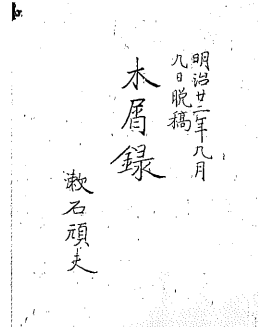 明治廿二年九月
九日脱稿
木屑録
漱石頑夫